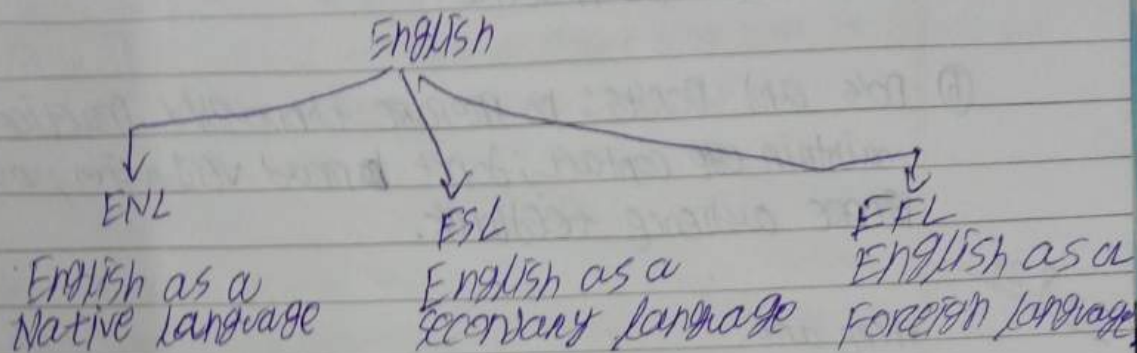 English
ENL
ESL
EFL
English as a
Native language
English as a
secondary language
English as a
Foreign language